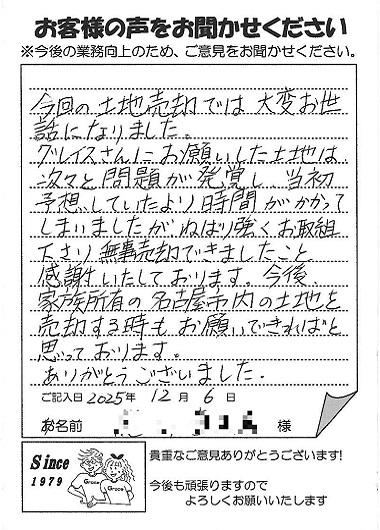 お客様の声をお聞かせください
※今後の業務向上のため、ご意見をお聞かせください。
今回の土地売却では大変お世
話になりました。
グレイスさんにお願いした土地は
次々と問題が発覚し、当初
予想していたより時間がかかって
しまいましたがねばり強くお取組
下さり無事売却できましたこと
感謝いたしております。今後、
家族所有の名古屋市内の土地を
売却する時もお願いできればと
思っております。
ありがとうございました。
ご記入日 2025年 12月 6日
お名前 様
Since
1979
Grace
Grace
貴重なご意見ありがとうございます!
今後も頑張りますので
よろしくお願いいたします